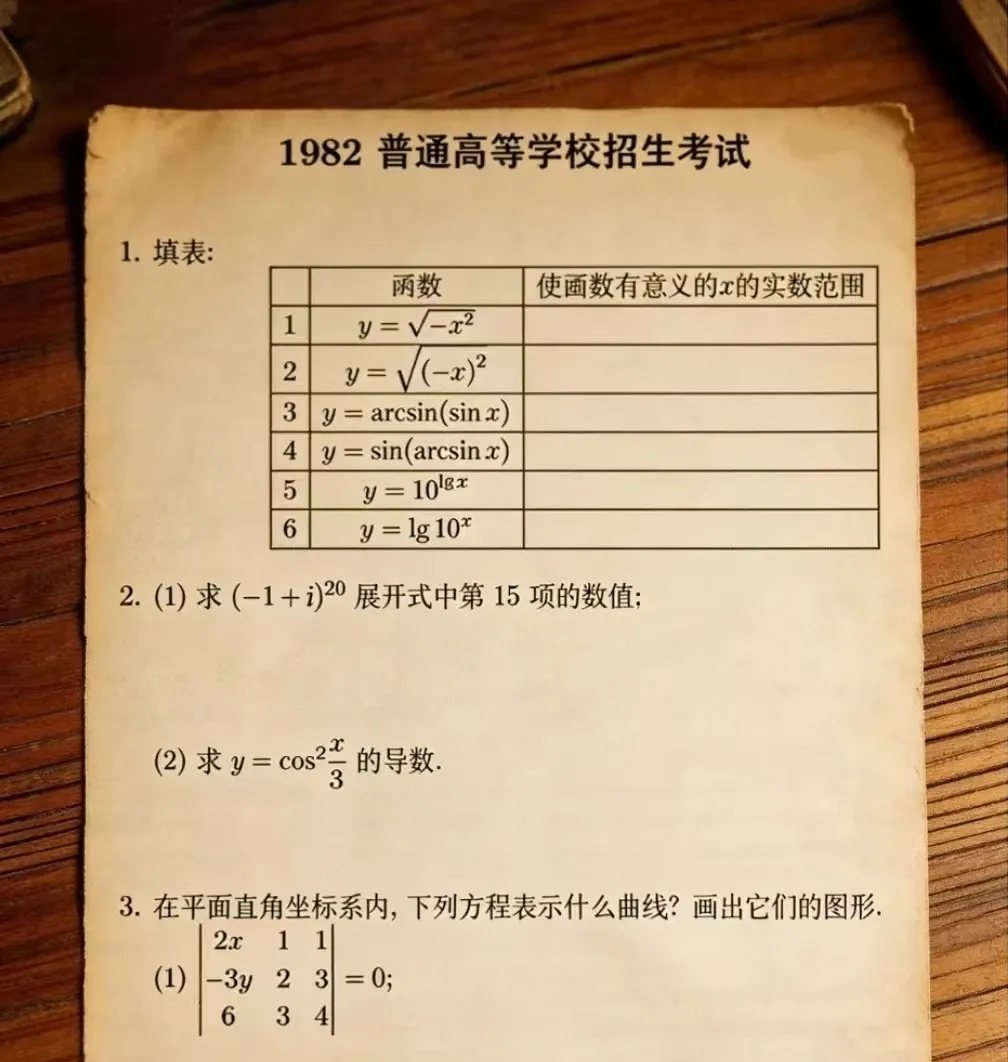 1982 普通高等学校招生考试
1. 填表:
函数 使函数有意义的x的实数范围
1 y = √(-x²)
2 y = √((-x)²)
3 y = arcsin(sin x)
4 y = sin(arcsin x)
5 y = 10^(lg x)
6 y = lg 10^x
2. (1) 求 (-1+i)²⁰ 展开式中第 15 项的数值;
(2) 求 y = cos² x/3 的导数.
3. 在平面直角坐标系内, 下列方程表示什么曲线? 画出它们的图形.
2x 1 1
(1) -3y 2 3 = 0;
6 3 4